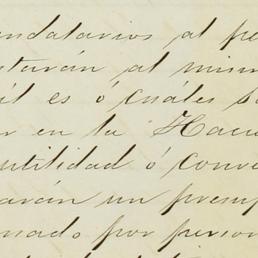 ndatarios al pe
starán al mism
ál es ó cuáles s
r en la Hacie
utilidad ó conve
arán un presup
nado, por person